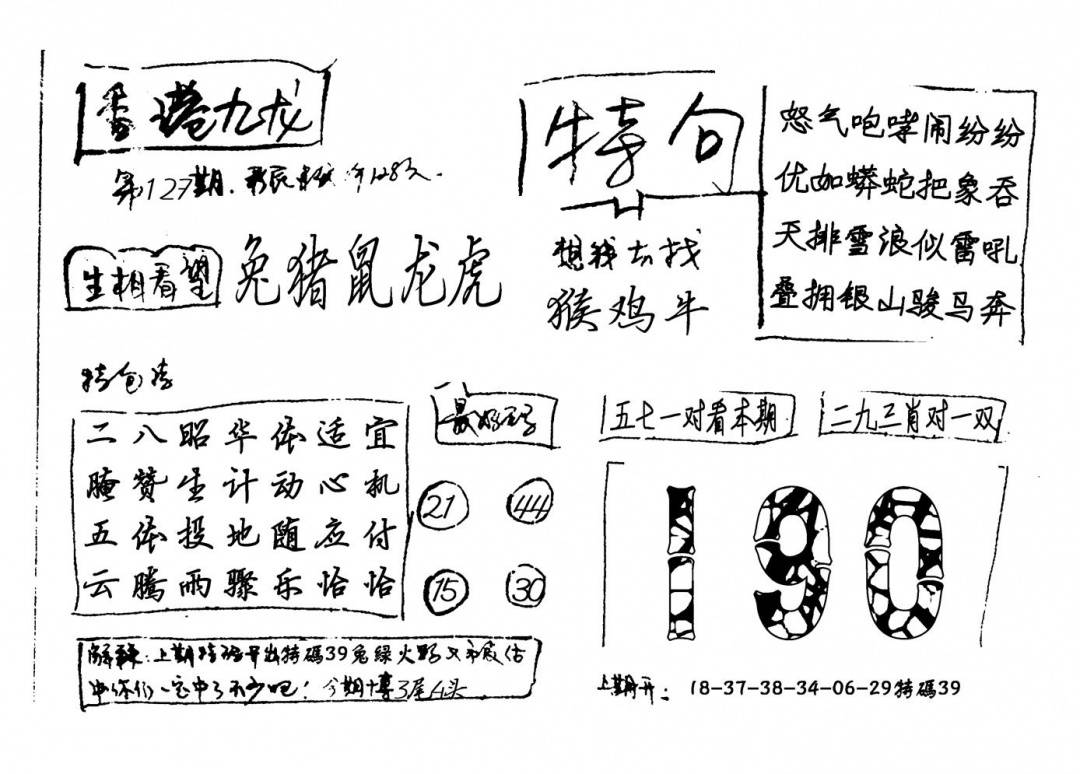 香港九龙
第127期
生相看望
兔猪鼠龙虎
特句
想我去找
猴鸡牛
怒气咆哮闹纷纷
优如蟒蛇把象吞
天排雪浪似雷吼
叠拥银山骏马奔
二八昭华依适宜
腌赞生计动心机
五依投地随应付
云腾雨骤乐恰恰
21
44
15
30
五七一对看本期
二九三肖对一双
190
解释：上期特码开出特碼39兔绿火
中你们一定中了不少吧！今期博3尾4头
上期开：18-37-38-34-06-29特碼39